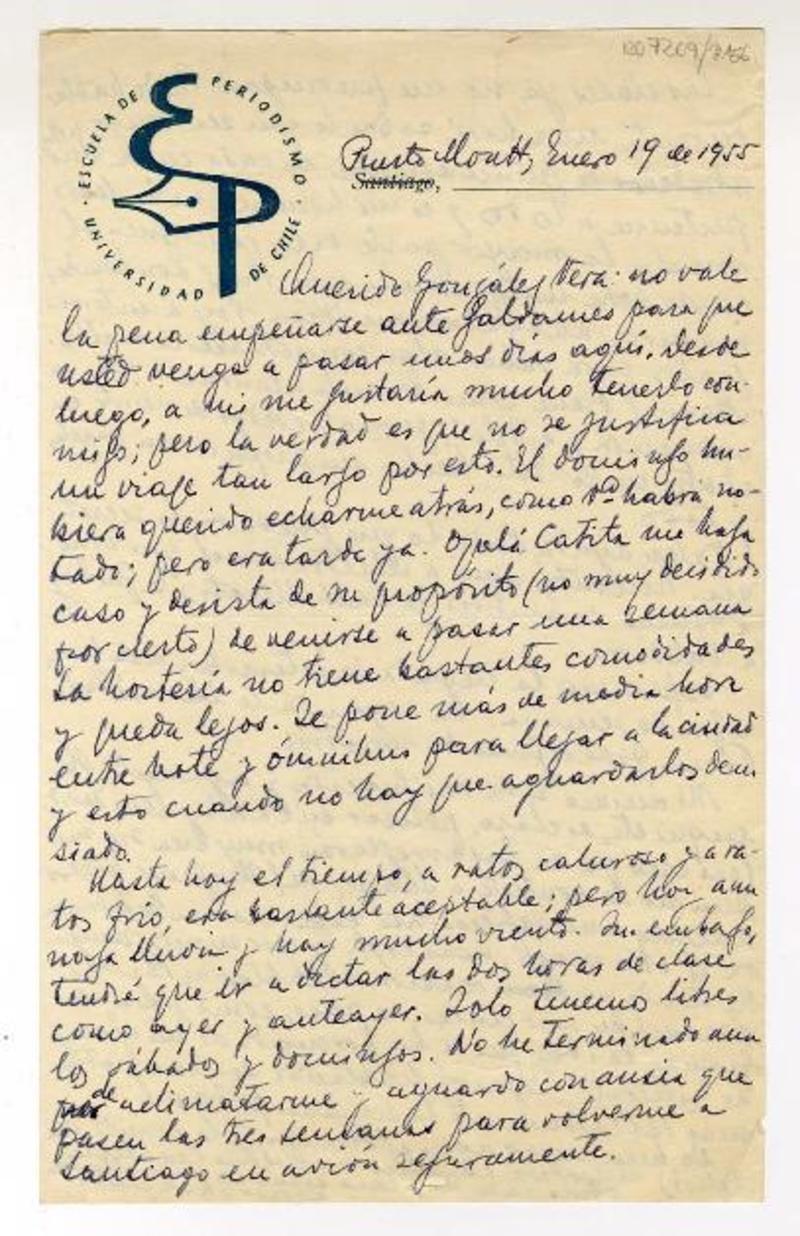 ESCUELA DE PERIODISMO
UNIVERSIDAD DE CHILE
EP
Puerto Montt, Enero 19 de 1955
Santiago,
Querido González Vera: no vale
la pena empeñarse ante Galdames para que
usted venga a pasar unos días aquí. Desde
luego, a mi me gustaría mucho tenerlo con-
migo; pero la verdad es que no se justifica
un viaje tan largo por esto. El domingo hu-
biera querido echarme atrás, como Ud. habrá no-
tado; pero era tarde ya. Ojalá Catita me haga
caso y desista de su propósito (no muy decidido
por cierto) de venirse a pasar una semana
La hostería no tiene bastantes comodidades
y queda lejos. Se pone más de media hora
entre bote y ómnibus para llegar a la ciudad
y esto cuando no hay que aguardarlos dema
siado.
Hasta hoy el tiempo, a ratos caluroso y a ra-
tos frío, era bastante aceptable; pero hoy ama
naga lluvia y hay mucho viento. Sin embargo,
tendré que ir a dictar las dos horas de clase
como ayer y anteayer. Solo tenemos libres
los sábados y domingos. No he terminado aun
de aclimatarme y aguardo con ansia que
pasen las tres semanas para volverme a
Santiago en avión seguramente.